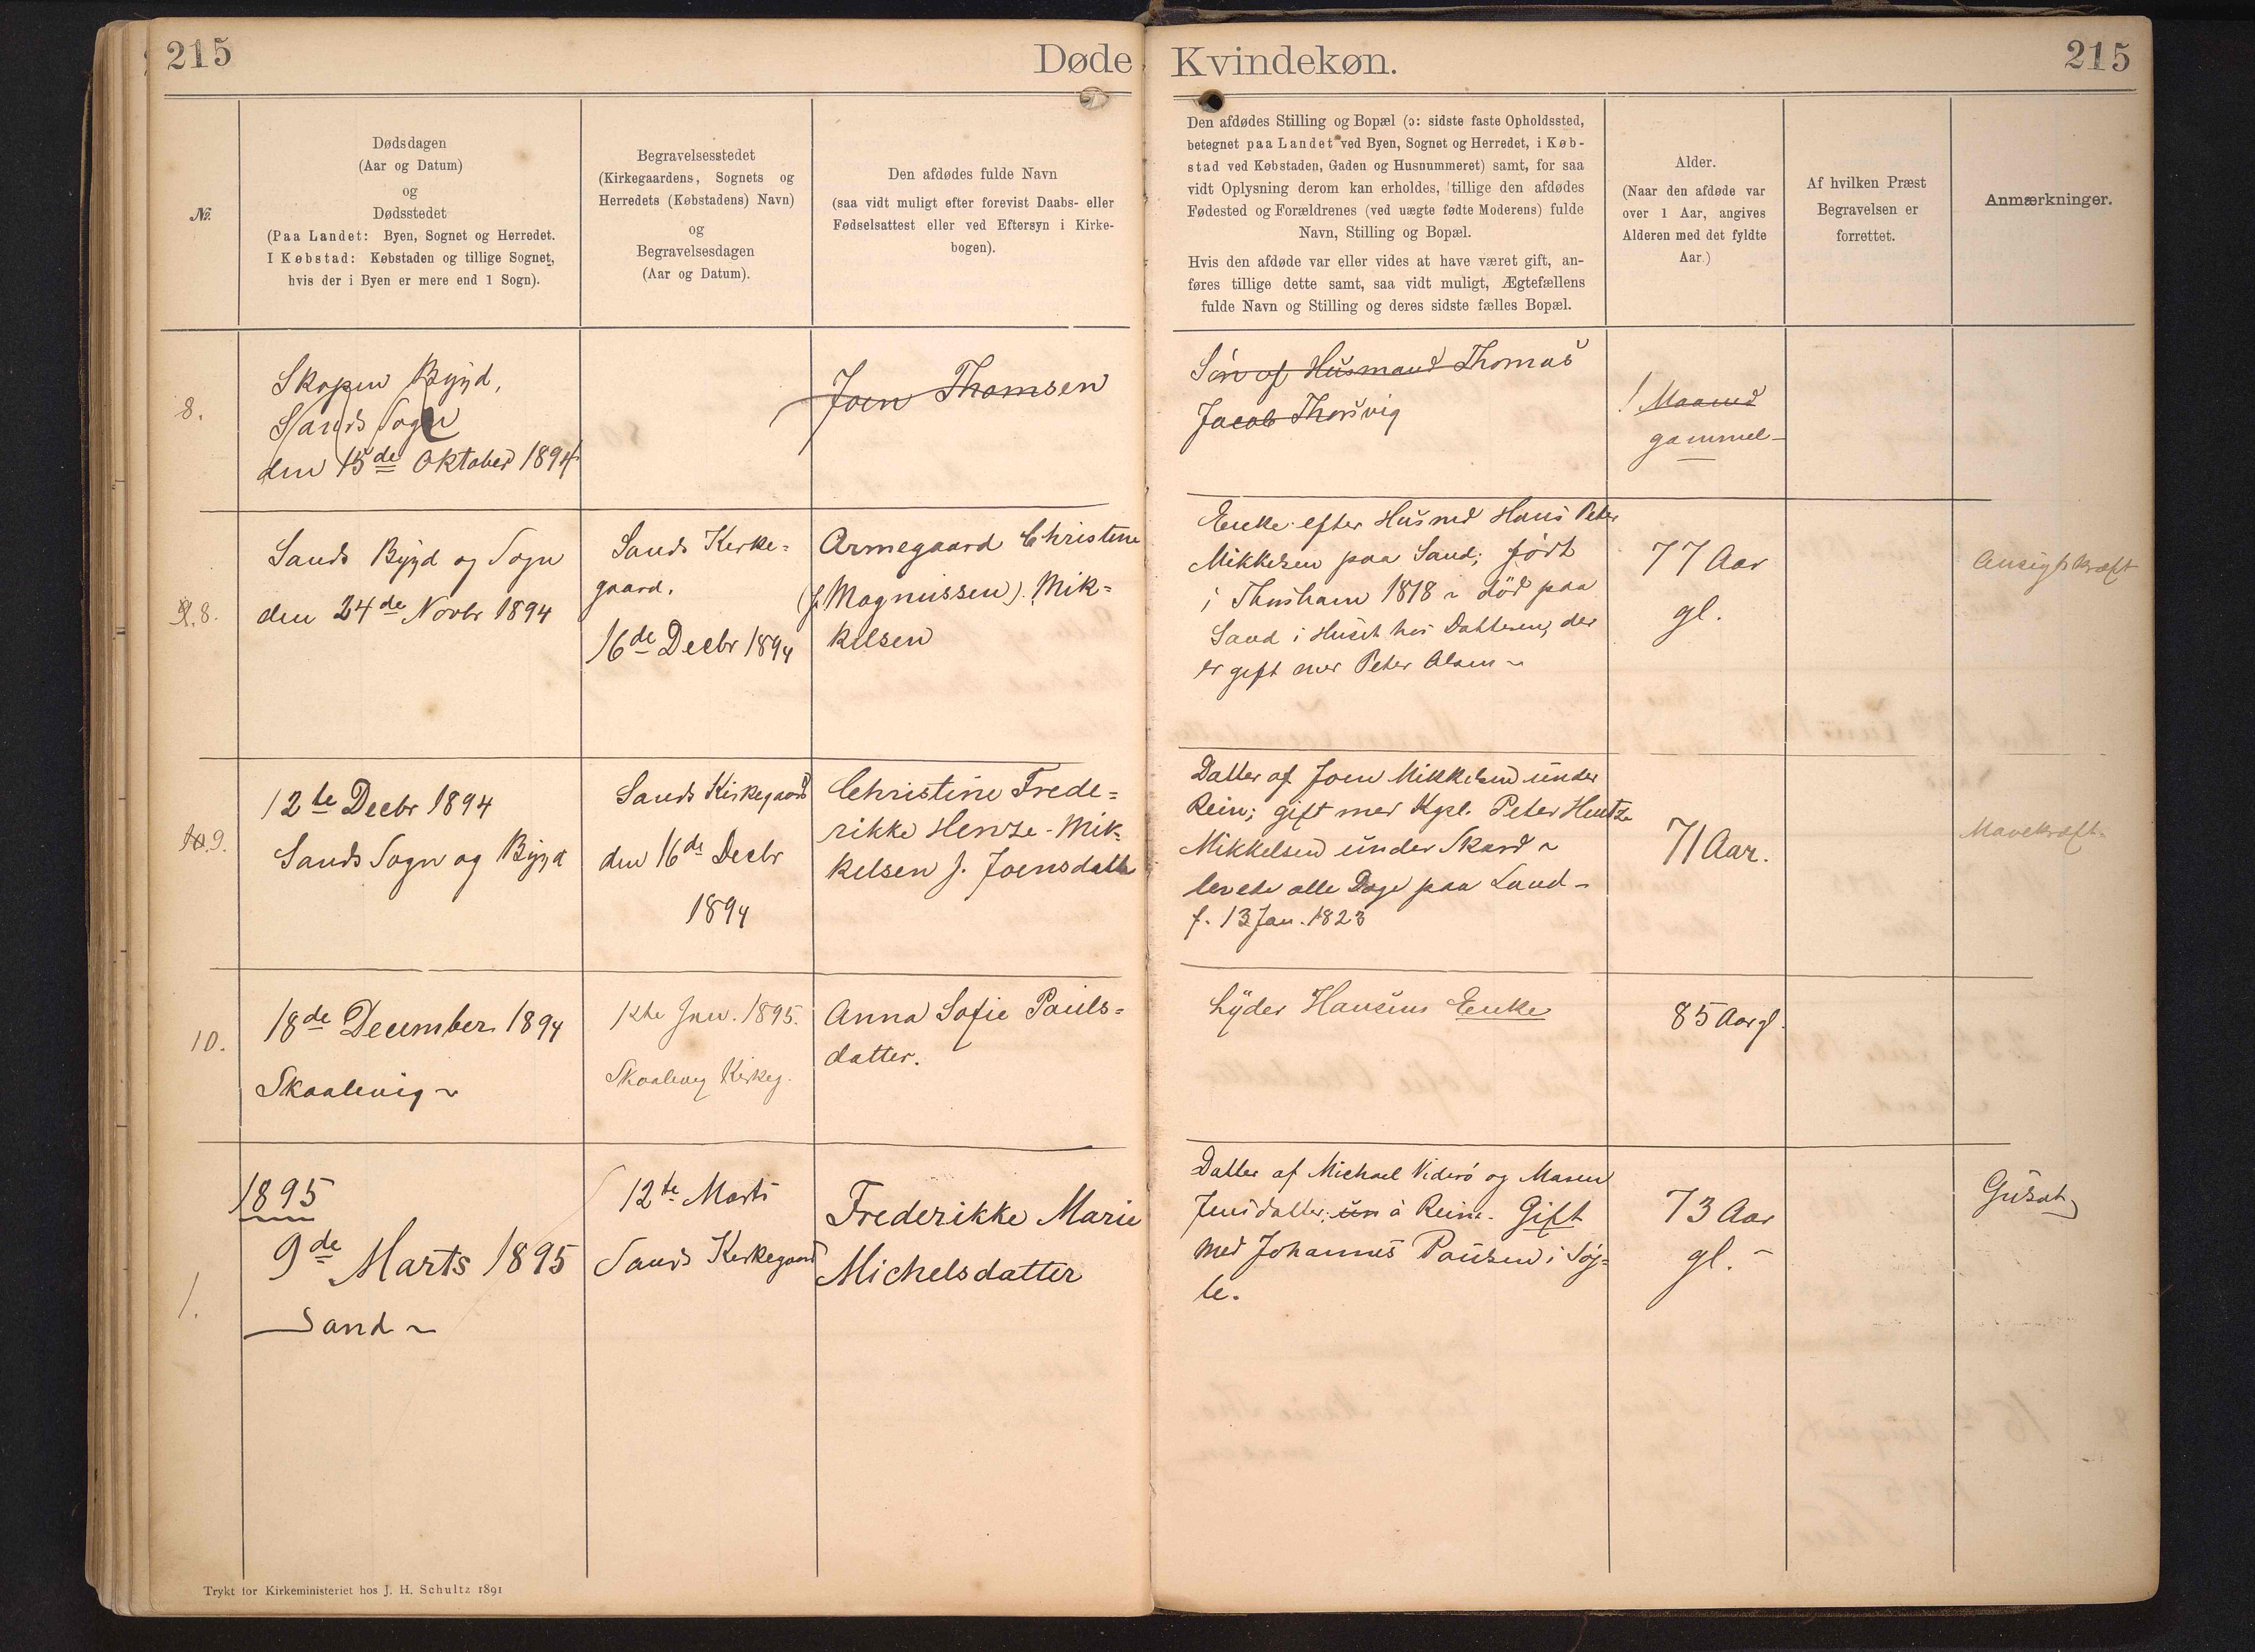 215
Døde
Kvindekøn.
215
№
Dødsdagen
(Aar og Datum)
og
Dødsstedet
(Paa Landet: Byen, Sognet og Herredet.
I Købstad: Købstaden og tillige Sognet,
hvis der i Byen er mere end 1 Sogn).
Begravelsesstedet
(Kirkegaardens, Sognets og
Herredets (Købstadens) Navn)
og
Begravelsesdagen
(Aar og Datum).
Den afdødes fulde Navn
(saa vidt muligt efter forevist Daabs- eller
Fødselsattest eller ved Eftersyn i Kirke-
bogen).
Den afdødes Stilling og Bopæl (ɔ: sidste faste Opholdssted,
betegnet paa Landet ved Byen, Sognet og Herredet, i Køb-
stad ved Købstaden, Gaden og Husnummeret) samt, for saa
vidt Oplysning derom kan erholdes, tillige den afdødes
Fødested og Forældrenes (ved uægte fødte Moderens) fulde
Navn, Stilling og Bopæl.
Hvis den afdøde var eller vides at have været gift, an-
føres tillige dette samt, saa vidt muligt, Ægtefællens
fulde Navn og Stilling og deres sidste fælles Bopæl.
Alder.
(Naar den afdøde var
over 1 Aar, angives
Alderen med det fyldte
Aar.)
Af hvilken Præst
Begravelsen er
forrettet.
Anmærkninger.
8.
Skopen Bygd,
Sands Sogn
den 15de Oktober 1894
Joen Thomsen
Søn af Husmand Thomas
Jacob Thorsvig
1 Maaned
gammel
8.
Sands Bygd og Sogn
den 24de Novbr 1894
Sands Kirke-
gaard.
16de Decbr 1894
Armegaard Christine
(f. Magnussen). Mik-
kelsen
Enke efter Husmd Hans Peter
Mikkelsen paa Sand; født
i Thorshavn 1818 ~ død paa
Sand i Huset hos Datteren, der
er gift med Peter Olsen ~
77 Aar
gl.
Ansigtskræft
9.
12te Decbr 1894
Sands Sogn og Bygd
Sands Kirkegaard
den 16de Decbr
1894
Christine Frede-
rikke Henze-Mik-
kelsen f. Joensdatter
Datter af Joen Mikkelsen under
Rein; gift med Kgsl. Peter Hentze
Mikkelsen under Skard ~
levede alle Dage paa Sand -
f. 13 Jan. 1823
71 Aar.
Mavekræft
10.
18de December 1894
Skaalevig ~
12te Janv. 1895.
Skaalevig Kirkeg.
Anna Sofie Pouls-
datter.
Lyder Hansens Enke
85 Aar gl.
1.
1895
9de Marts 1895
Sand ~
12te Marts
Sands Kirkegaard
Frederikke Marie
Michelsdatter
Datter af Michael Viderø og Maren
Jensdatter, un á Reine. Gift
med Johannes Poulsen i
73 Aar
gl. -
Trykt for Kirkeministeriet hos J. H. Schultz 1891